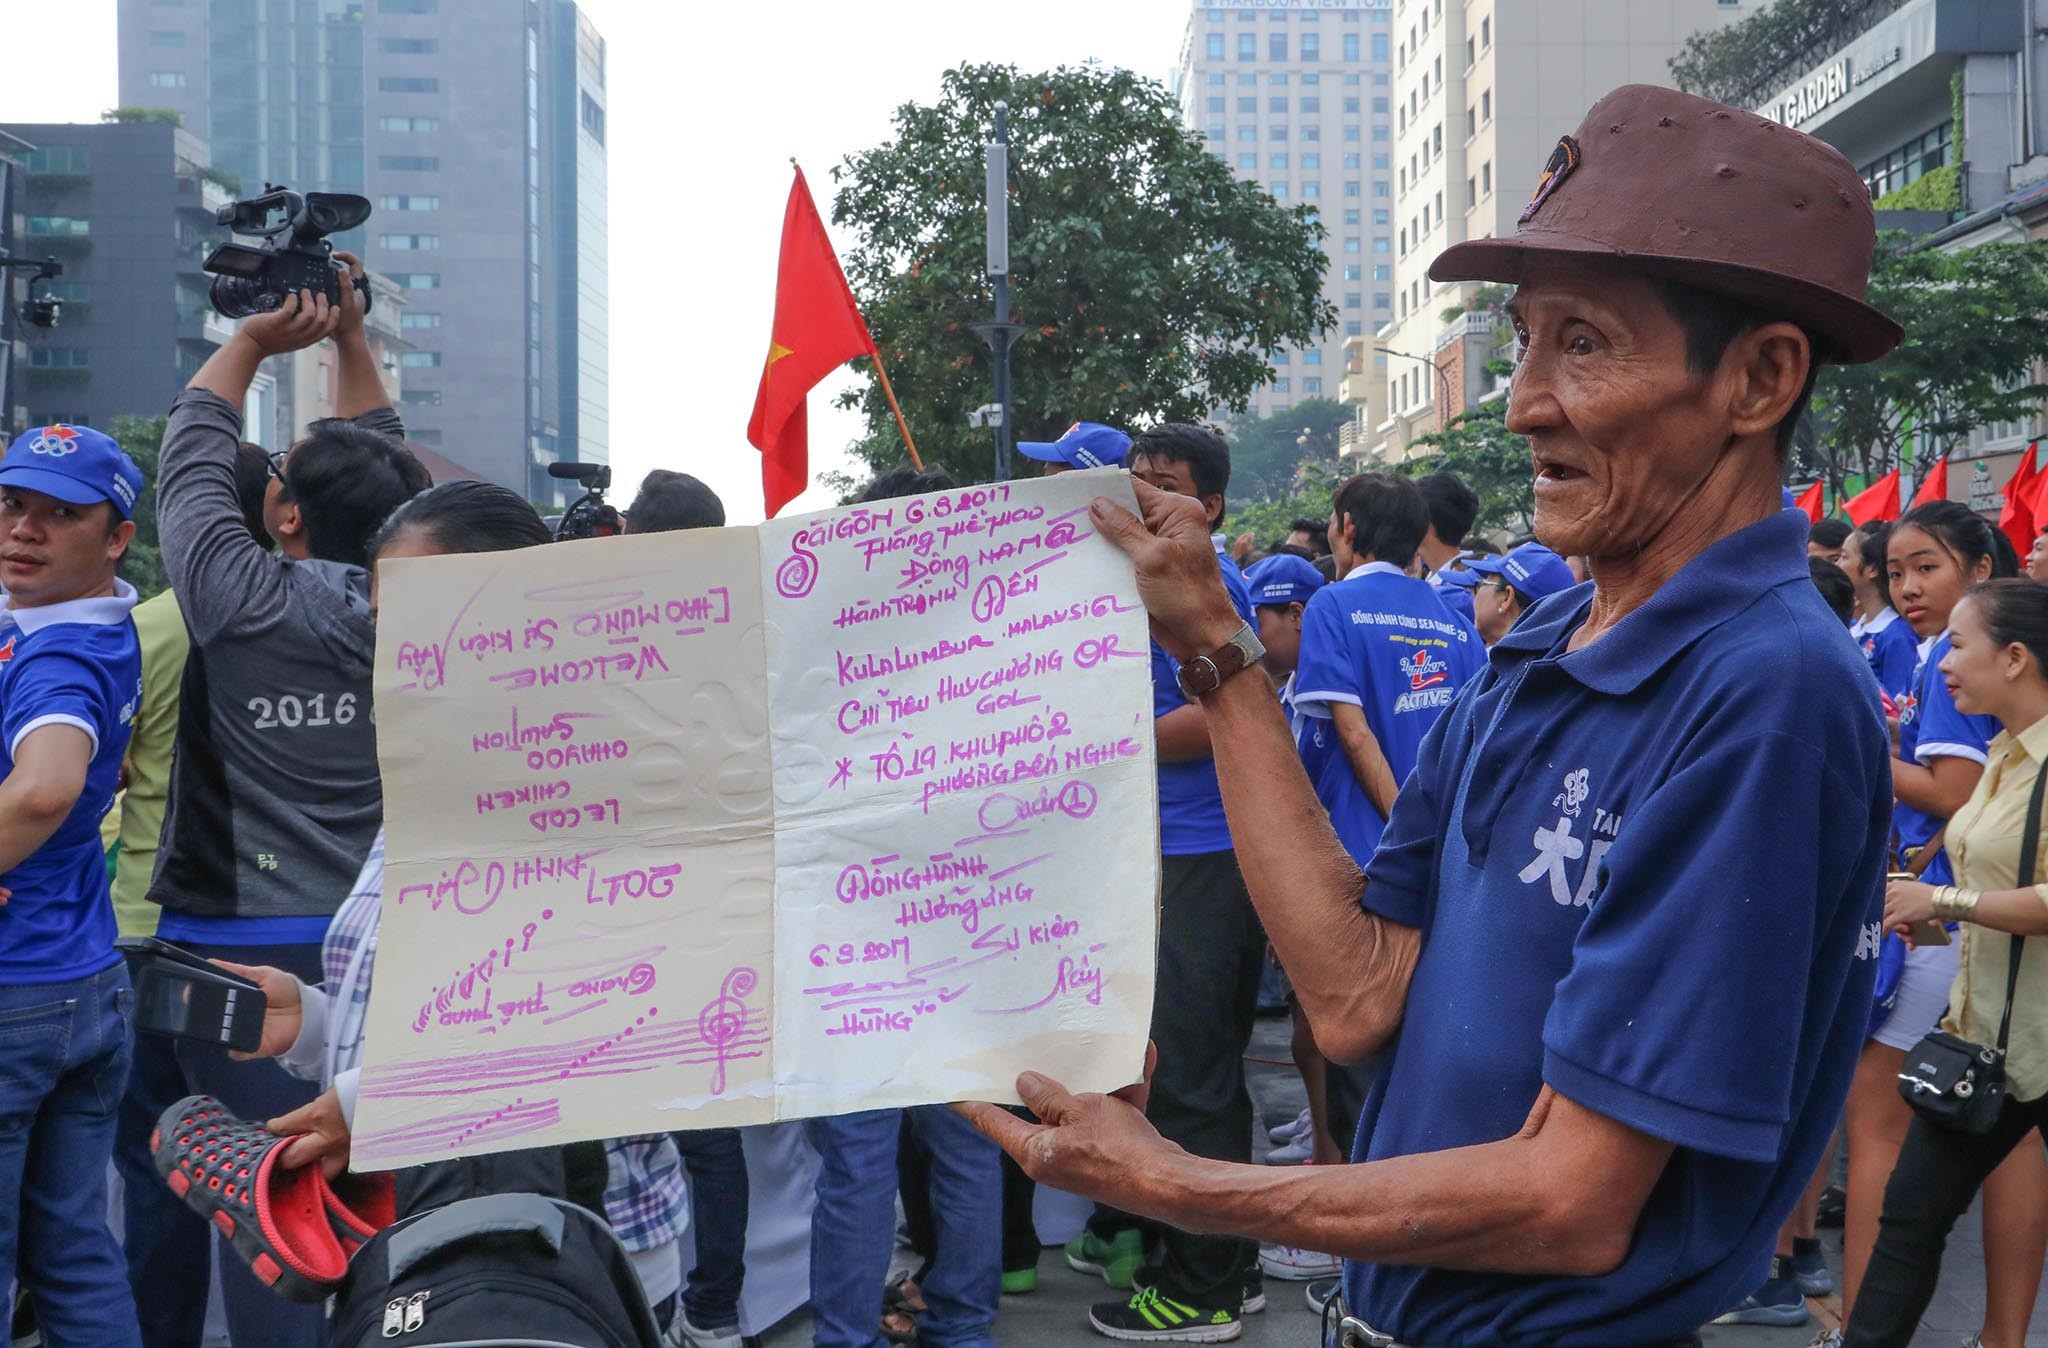 HARBOUR VIEW TOW
GARDEN
SÀIGÒN 6.8.2017
THÁNG THỂ THAO
ĐÔNG NAM Á
HÀNH TRÌNH ĐẾN
KULALUMBUR.MALAYSIA
CHỈ TIÊU HUY CHƯƠNG OR
GOL
* TỔ 19.KHU PHỐ 2
PHƯỜNG BẾN NGHÉ
QUẬN 1
ĐỒNG HÀNH
HƯỞNG ỨNG
6.8.2017 SỰ KIỆN
NÀY
HÙNG VÕ
CHÀO MỪNG SỰ KIỆN NÀY
WELCOME
SALUTION
OHHYOO
CHIKEN
LECOD
2017
THỂ THAO
2016
ĐỒNG HÀNH CÙNG SEA GAME 29
Number 1
ACTIVE
TAI
大